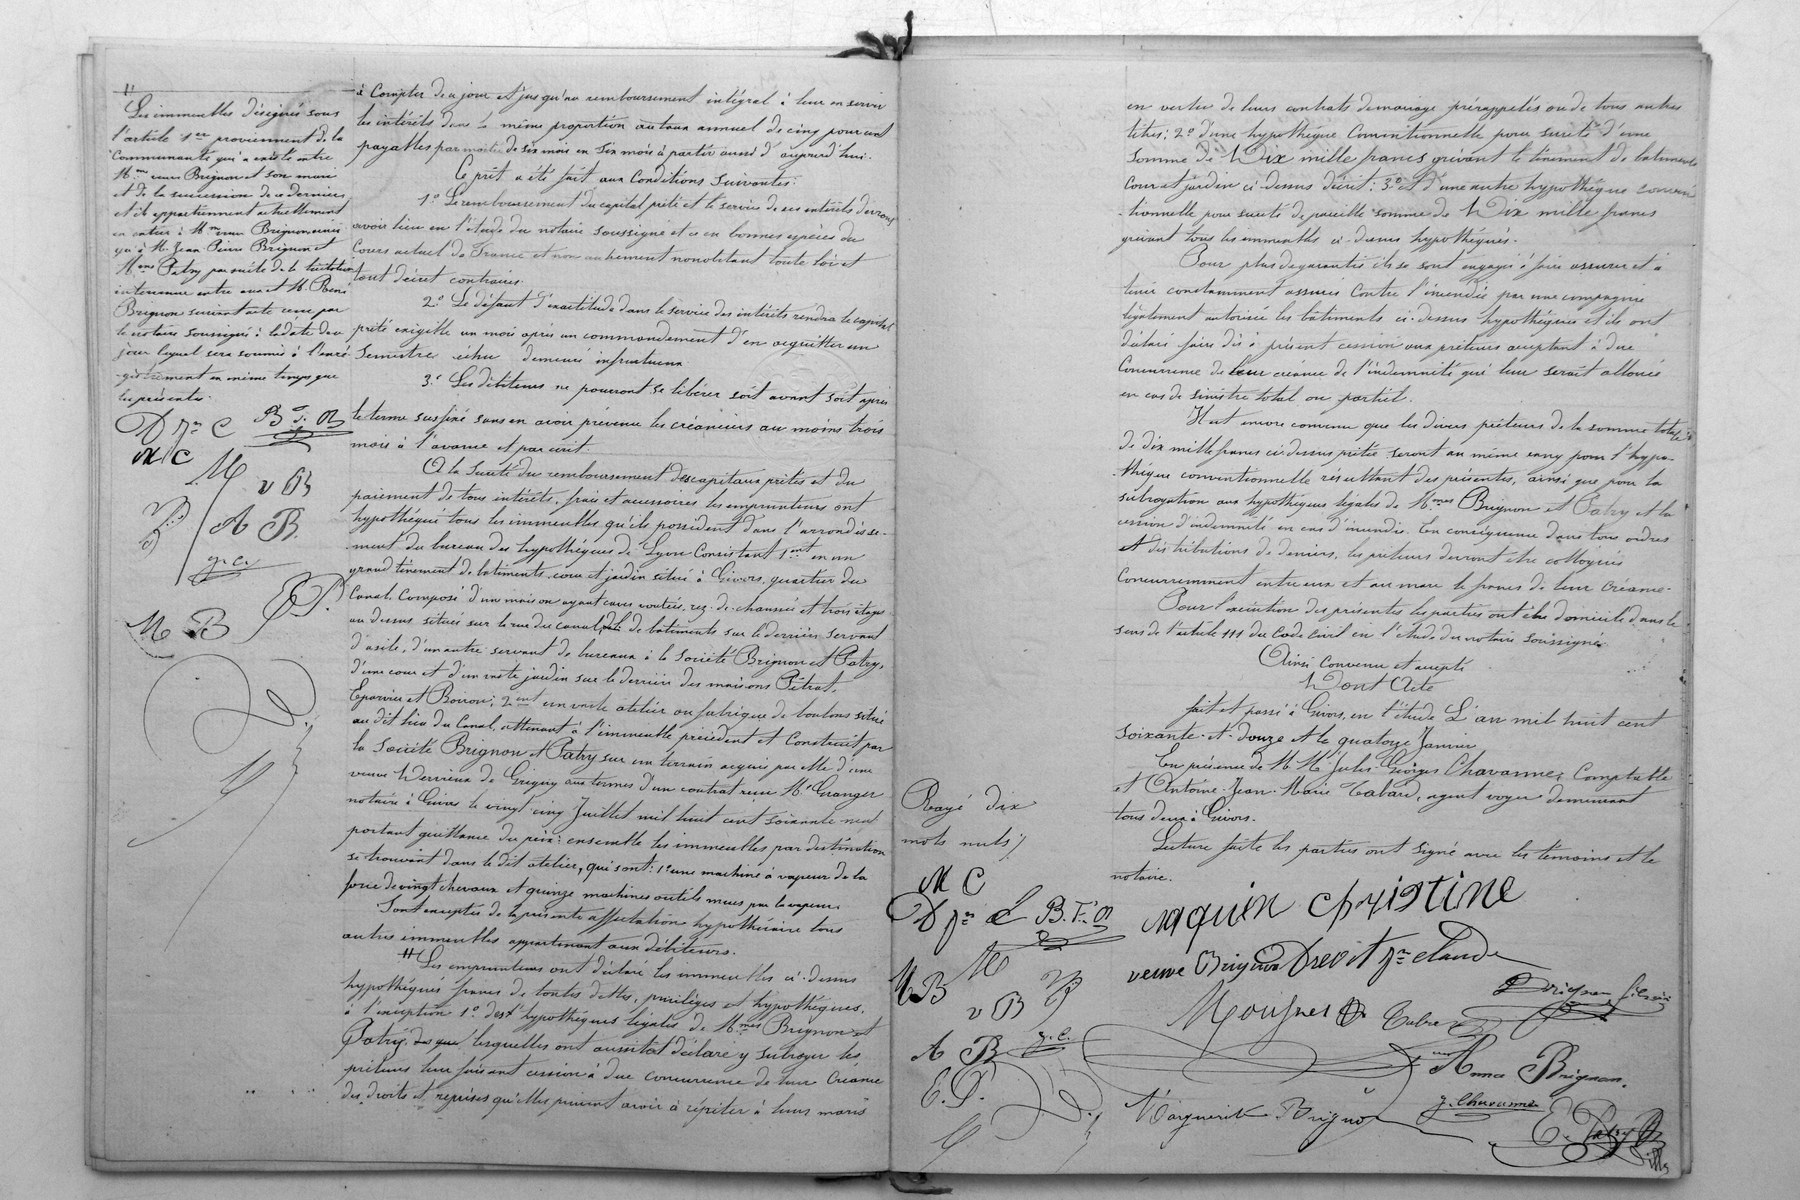 à Compter de ce jour et jusqu'au remboursement intégral à leur en servir
les intérêts dans la même proportion au taux annuel de cinq pour cent
payables par moitié de six mois en six mois à partir aussi d'aujourd'hui.
Ce prêt a été fait aux Conditions suivantes:
1º Le remboursement du capital prêté et le service de ses intérêts devront
avoir lieu en l'étude du notaire soussigné et ce en bonnes espèces du
Cours actuel de France et non autrement nonobstant toute loi et
tout décret contraires.
2º Le défaut d'exactitude dans le service des intérêts rendra le capital
prêté exigible un mois après un commandement d'en acquitter un
Semestre échu demeuré infructueux
3º Les débiteurs ne pourront se libérer soit avant soit après
le terme susfixé sans en avoir prévenu les créanciers au moins trois
mois à l'avance et par écrit.
A la sureté du remboursement des capitaux prêtés et du
paiement de tous intérêts, frais et accessoires les emprunteurs ont
hypothéqué tous les immeubles qu'ils possèdent dans l'arrondisse-
-ment du bureau des hypothèques de Lyon Consistant 1ent en un
grand tènement de batiments, cour et jardin situé à Givors, quartier du
Canal, Composé d'un maison ayant caves voutées, rez-de-chaussée et trois étages
au dessus situés sur la rue du canal, de batiments sur le derrière servant
d'asile, d'un autre servant de bureaux à la Société Brignon et Patry,
d'une cour et d'un vaste jardin sur le derrière des maisons Pétrat,
Eparvier et Boiron; 2ent un vaste atelier ou fabrique de boulons situé
au dit lieu du Canal, attenant à l'immeuble précédent et Construit par
la Société Brignon et Patry sur un terrain acquis par elle d'une
veuve Derrieux de Gregny aux termes d'un contrat reçu Me Granger
notaire à Givors le vingt-cinq Juillet mil huit cent soixante neuf
portant quittance du prix: ensemble les immeubles par destination
se trouvant dans le dit atelier, qui sont: 1º une machine à vapeur de la
force de vingt chevaux et quinze machines outils mues par la vapeur.
Sont exceptés de la présente affectation hypothécaire tous
autres immeubles appartenant aux débiteurs.
// Les emprunteurs ont déclaré les immeubles ci-dessus
hypothéqués francs de toutes dettes, privilèges et hypothèques,
à l'exception 1º des hypothèques légales de Mmes Brignon et
Patry, lesquelles ont aussitôt déclaré y subroger les
prêteurs leur faisant cession à due concurrence de leur Créance
des droits et reprises qu'elles peuvent avoir à répéter à leurs maris
//
Les immeubles désignés sous
l'article 1er proviennent de la
Communauté qui a existé entre
Mme veuve Brignon et son mari
et de la succession de ce dernier,
et ils appartiennent actuellement
en entier à Mme veuve Brignon ainsi
qu'à M. Jean Pierre Brignon et
Mme Patry par suite de la licitation
intervenue entre eux et M. René
Brignon suivant acte reçu par
le notaire soussigné à la date de ce
jour lequel sera soumis à l'enre-
-gistrement en même temps que
les présentes.
D Jn C
B.T. M
M C
M
v B
A B.
J.C.
E P.
M B
en vertu de leurs contrats de mariage prérappelés ou de tous autres
titres; 2º d'une hypothèque Conventionnelle pour sureté d'une
somme de Dix mille francs grévant le tènement de batiments
Cour et jardin ci-dessus décrit; 3º et d'une autre hypothèque conven-
-tionnelle pour sureté de pareille somme de Dix mille francs
grévant tous les immeubles ci-dessus hypothéqués.
Pour plus de garanties ils se sont engagés à faire assurer et à
tenir constamment assurés Contre l'incendie par une compagnie
légalement autorisée les bâtiments ci-dessus hypothéqués et ils ont
déclaré faire dès à présent cession aux prêteurs acceptant à due
Concurrence de leur créance de l'indemnité qui leur serait allouée
en cas de sinistre total ou partiel.
Il est encore convenu que les divers prêteurs de la somme totale
de dix mille francs ci-dessus prêtée seront au même rang pour l'hypo-
-thèque conventionnelle résultant des présentes, ainsi que pour la
subrogation aux hypothèques légales de Mmes Brignon et Patry et la
cession d'indemnité en cas d'incendie. En conséquence dans tous ordres
et distributions de deniers, les prêteurs devront être colloqués
Concurremment entre eux et au marc le franc de leur Créance.
Pour l'exécution des présentes les parties ont élu domicile dans le
sens de l'article 111 du Code Civil en l'étude du notaire soussigné.
Ainsi convenu et accepté
Dont Acte
fait et passé à Givors, en l'étude L'an mil huit cent
soixante-et-douze et le quatorze Janvier
En présence de M.M. Jules Georges Chavannes Comptable
et Antoine-Jean-Marie Tabard, agent voyer demeurant
tous deux à Givors.
Lecture faite les parties ont signé avec les témoins et le
notaire.
Rayé dix
mots nuls
M C
D Jn C
B.T. M
M
M B
v B
A B
J.C.
E. P.
Jaquin Christine
veuve Brignon Drevet Jn Claude
Anna Brignon.
Marguerite Brignon
J. Chavannes
E. Patry